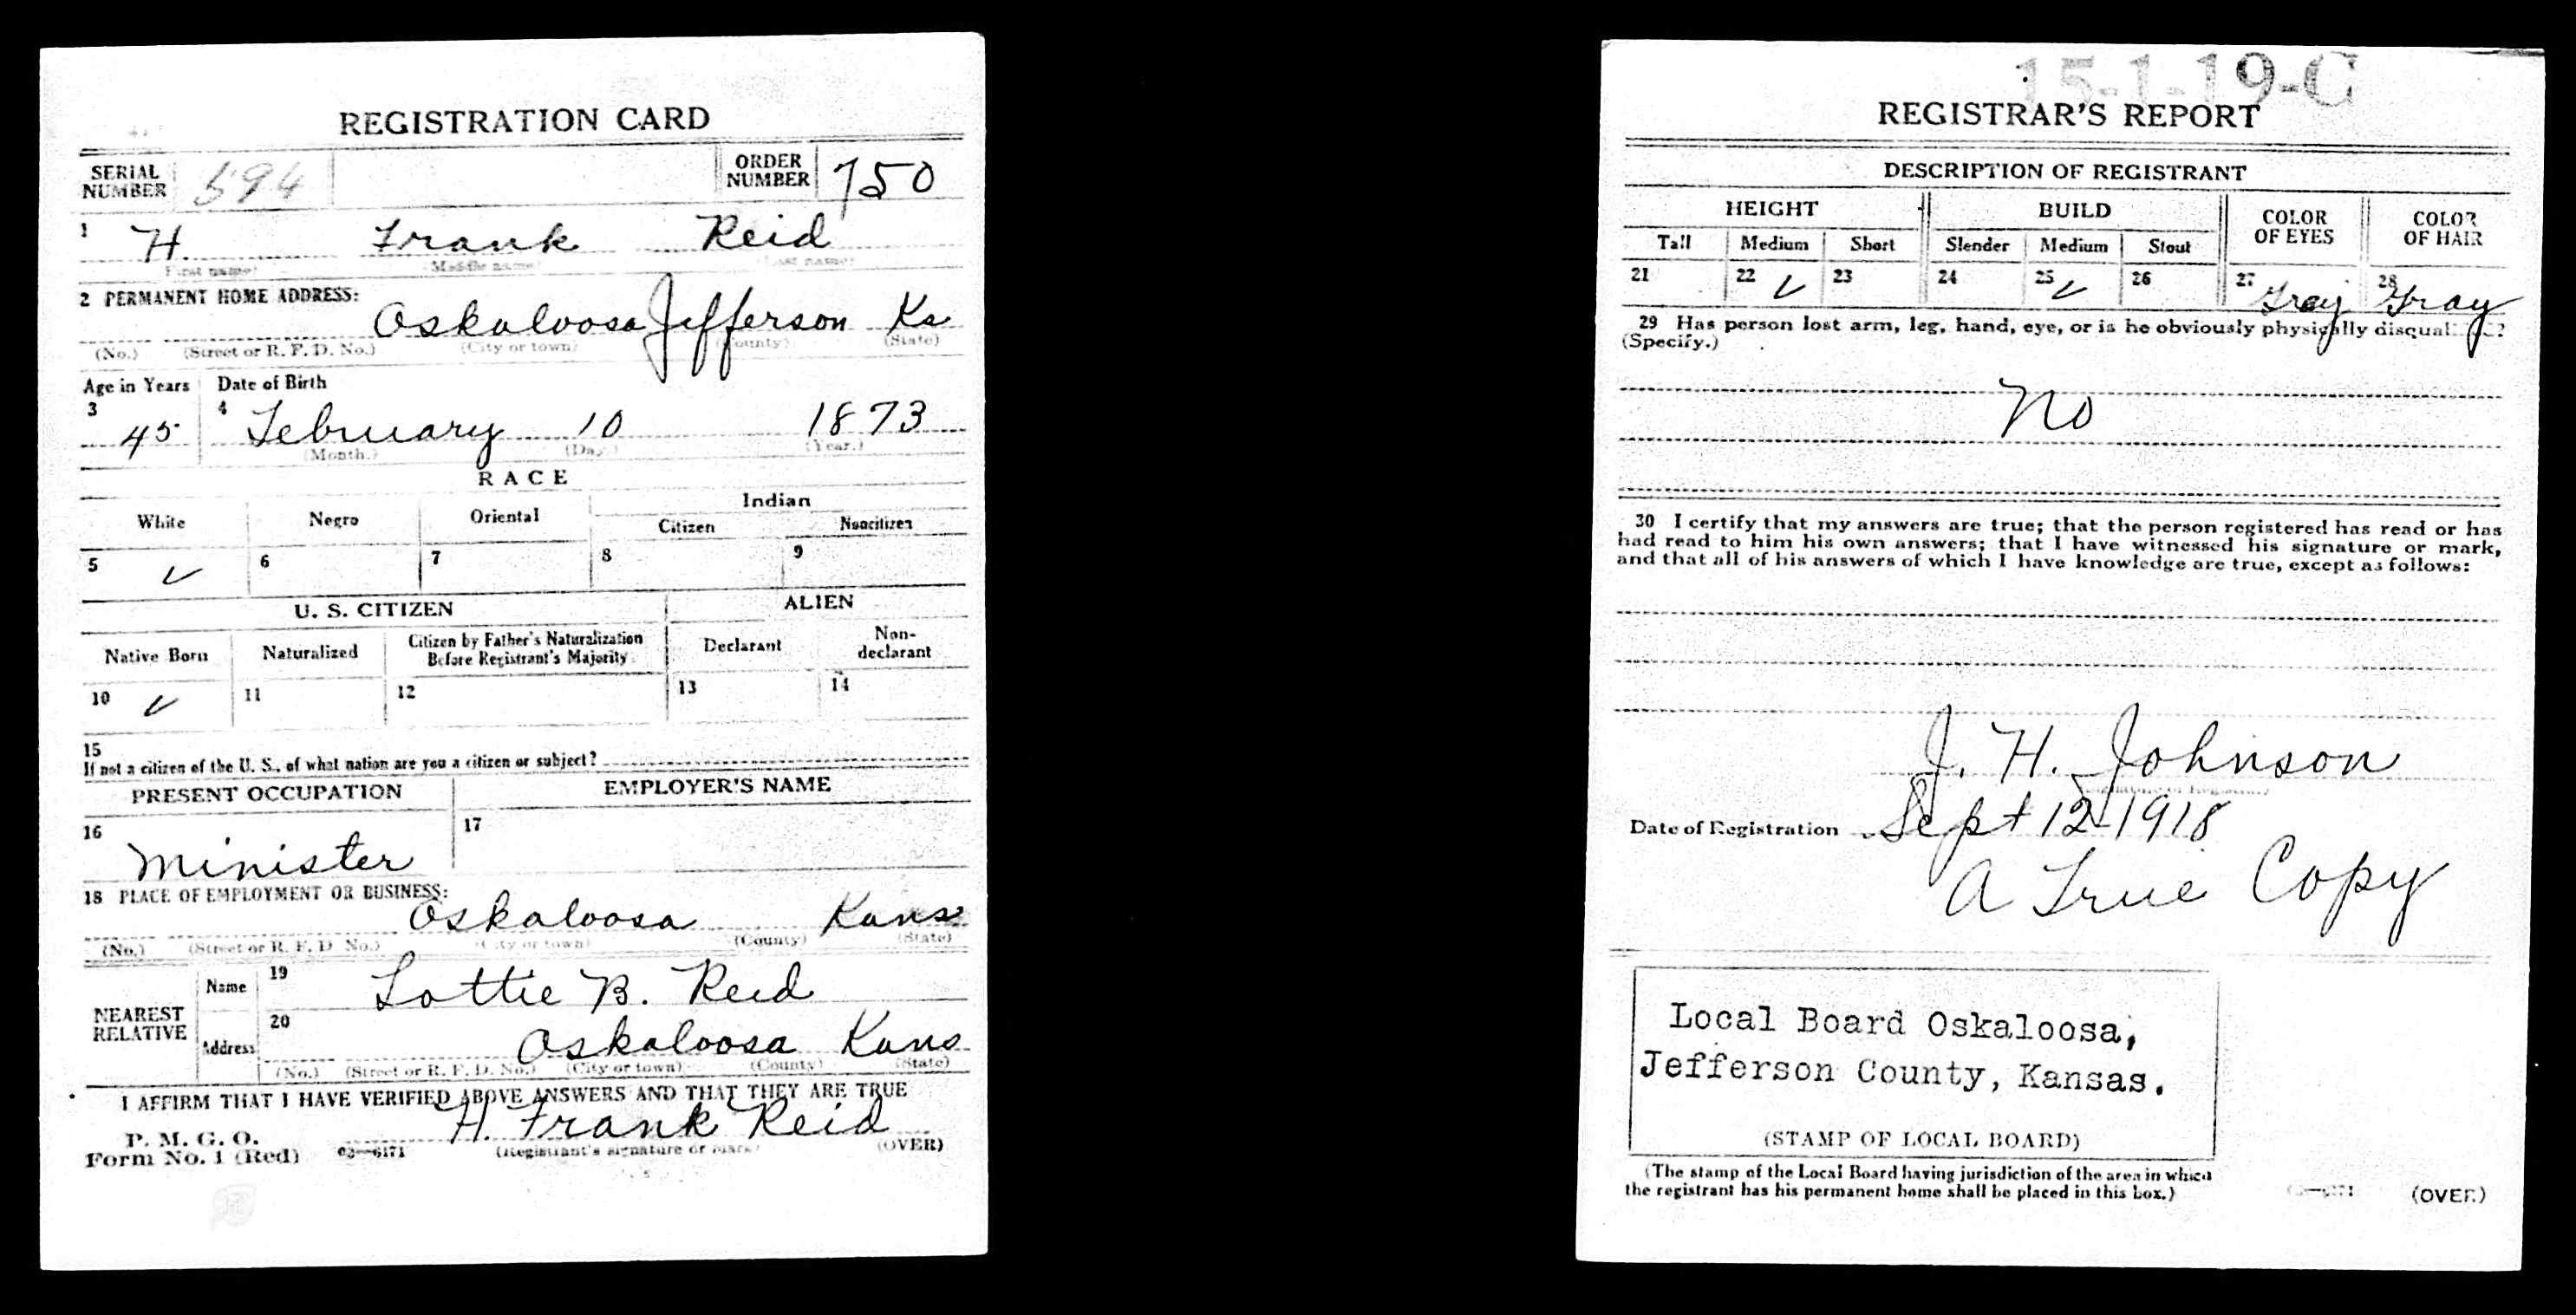 REGISTRATION CARD
SERIAL NUMBER 594 ORDER NUMBER 750
1 H. Frank Reid
(First name) (Middle name) (Last name)
2 PERMANENT HOME ADDRESS:
Oskaloosa Jefferson Ks
(No.) (Street or R. F. D. No.) (City or town) (County) (State)
Age in Years Date of Birth
3 4
45 February 10 1873
(Month.) (Day.) (Year.)
RACE
White Negro Oriental Indian
Citizen Noncitizen
5 ✓ 6 7 8 9
U. S. CITIZEN ALIEN
Native Born Naturalized Citizen by Father's Naturalization Before Registrant's Majority Declarant Non-declarant
10 ✓ 11 12 13 14
15
If not a citizen of the U. S., of what nation are you a citizen or subject?
PRESENT OCCUPATION EMPLOYER'S NAME
16 17
Minister
18 PLACE OF EMPLOYMENT OR BUSINESS:
Oskaloosa Kans
(No.) (Street or R. F. D. No.) (City or town) (County) (State)
NEAREST RELATIVE
Name 19 Lottie B. Reid
Address 20 Oskaloosa Kans
(No.) (Street or R. F. D. No.) (City or town) (County) (State)
I AFFIRM THAT I HAVE VERIFIED ABOVE ANSWERS AND THAT THEY ARE TRUE
H. Frank Reid
P. M. G. O.
Form No. 1 (Red) 03—6171 (Registrant's signature or mark) (OVER)
15-1-19-C
REGISTRAR'S REPORT
DESCRIPTION OF REGISTRANT
HEIGHT BUILD COLOR OF EYES COLOR OF HAIR
Tall Medium Short Slender Medium Stout
21 22 ✓ 23 24 25 ✓ 26 27 Gray 28 Gray
29 Has person lost arm, leg, hand, eye, or is he obviously physically disqualified?
(Specify.)
No
30 I certify that my answers are true; that the person registered has read or has
had read to him his own answers; that I have witnessed his signature or mark,
and that all of his answers of which I have knowledge are true, except as follows:
J. H. Johnson
(Signature of Registrar)
Date of Registration Sept 12-1918
A True Copy
Local Board Oskaloosa,
Jefferson County, Kansas.
(STAMP OF LOCAL BOARD)
(The stamp of the Local Board having jurisdiction of the area in which
the registrant has his permanent home shall be placed in this box.)
03—6171 (OVER)